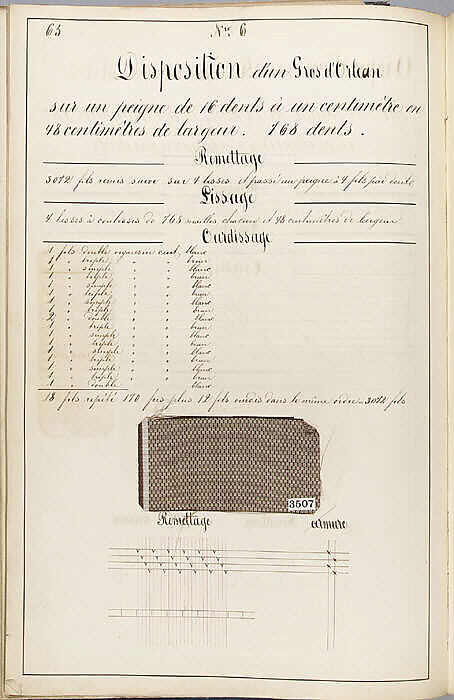 65 N° 6
Disposition d'un Gros d'Orléan
sur un peigne de 16 dents à un centimètre en
48 centimètres de largeur. 768 dents.
Remettage
3072 fils remis suivis sur 4 lisses et passé au peigne à 4 fils par dents
Lissage
4 lisses à coulisses de 768 mailles chacune et 48 centimètres de largeur
Ourdissage
1 fils double organsin cuit, blanc
1 " triple " " brun
1 " simple " " blanc
1 " triple " " brun
1 " simple " " blanc
1 " triple " " brun
1 " simple " " blanc
1 " triple " " brun
2 " double " " blanc
1 " triple " " brun
1 " simple " " blanc
1 " triple " " brun
1 " simple " " blanc
1 " triple " " brun
1 " simple " " blanc
1 " triple " " brun
1 " double " " blanc
18 fils répété 170 fois plus 12 fils ourdis dans le même ordre = 3072 fils
3507
Remettage armure